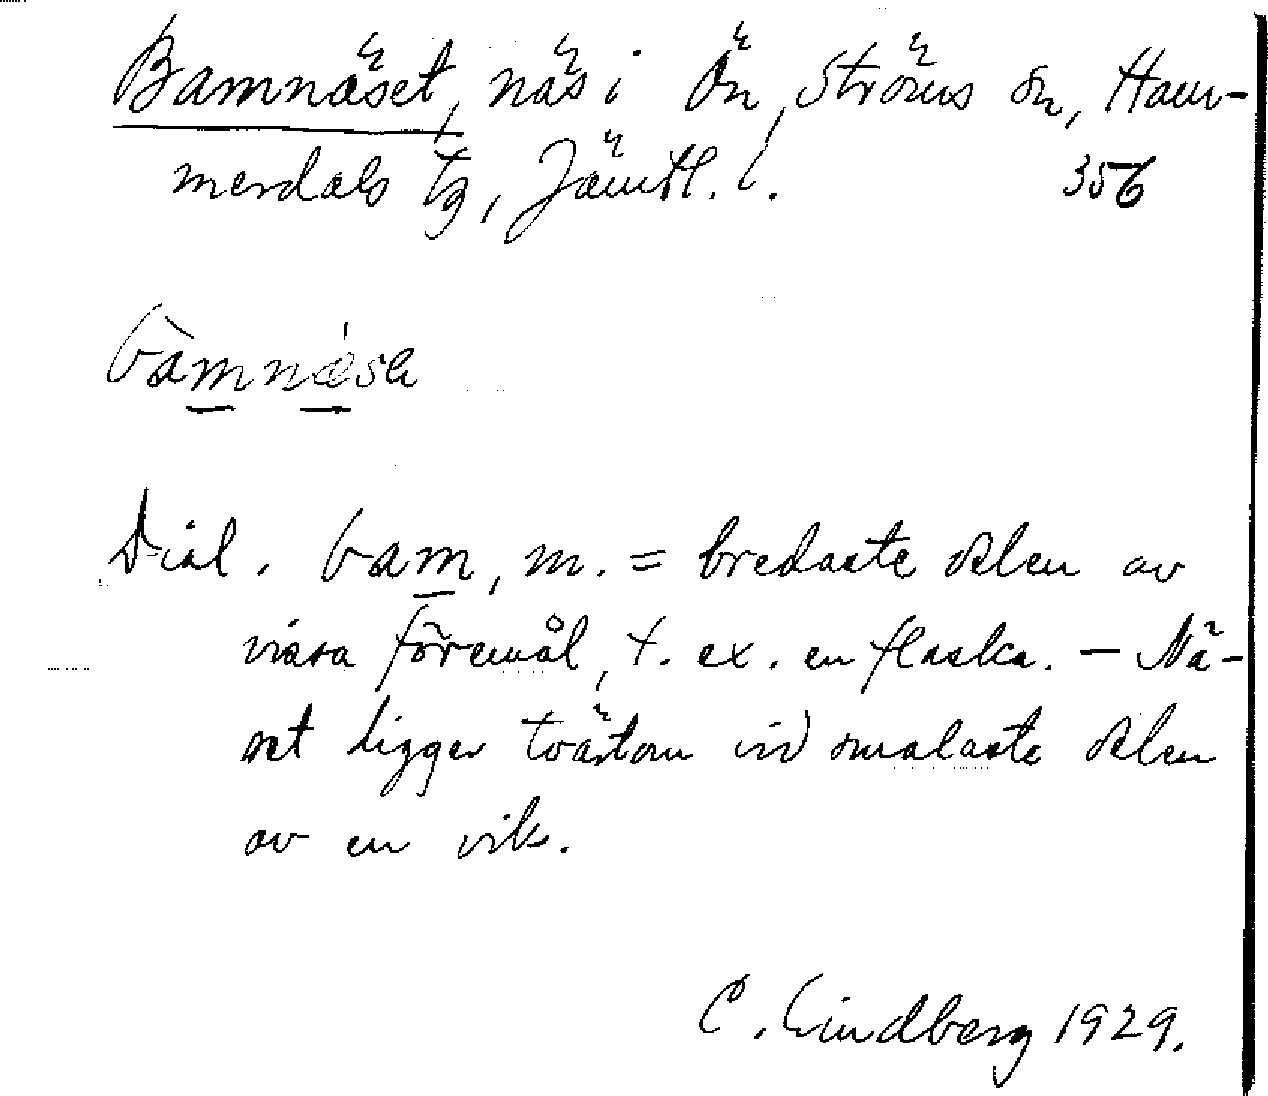 Bamnäset, näs i Ön, Ströms sn, Ham-
merdals tg, Jämtl. l. 356
bàmnǽsa
Dial. bam, m. = bredaste delen av
vissa föremål, t. ex. en flaska. – Nä-
set ligger tvärtom vid smalaste delen
av en vik.
C. Lindberg 1929.